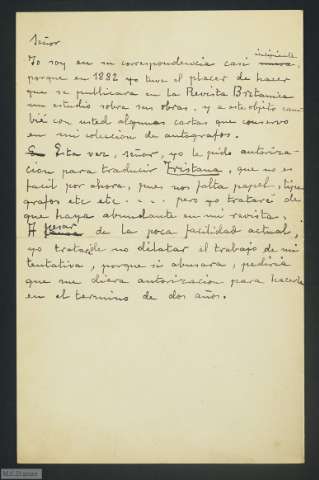 Señor
Yo soy en su correspondencia casi nueva, incipiente
porque en 1882 yo tuve el placer de hacer
que se publicara en la Revista Britanica
un estudio sobre sus obras. y a este objeto cam-
bié con usted algunas cartas que conservo
en mi coleccion de autografos.
En Esta vez, señor, yo le pido autoriza-
cion para traducir Tristana, que no es
facil por ahora, pues nos falta papel, tipo-
grafos etc etc .... pero yo trataré de
que haya abundante en mi revista.
A pesar de la poca facilidad actual,
yo trataré de no dilatar el trabajo de mi
tentativa, porque si abusara, pediria
que me diera autorizacion para hacerlo
en el termino de dos años.